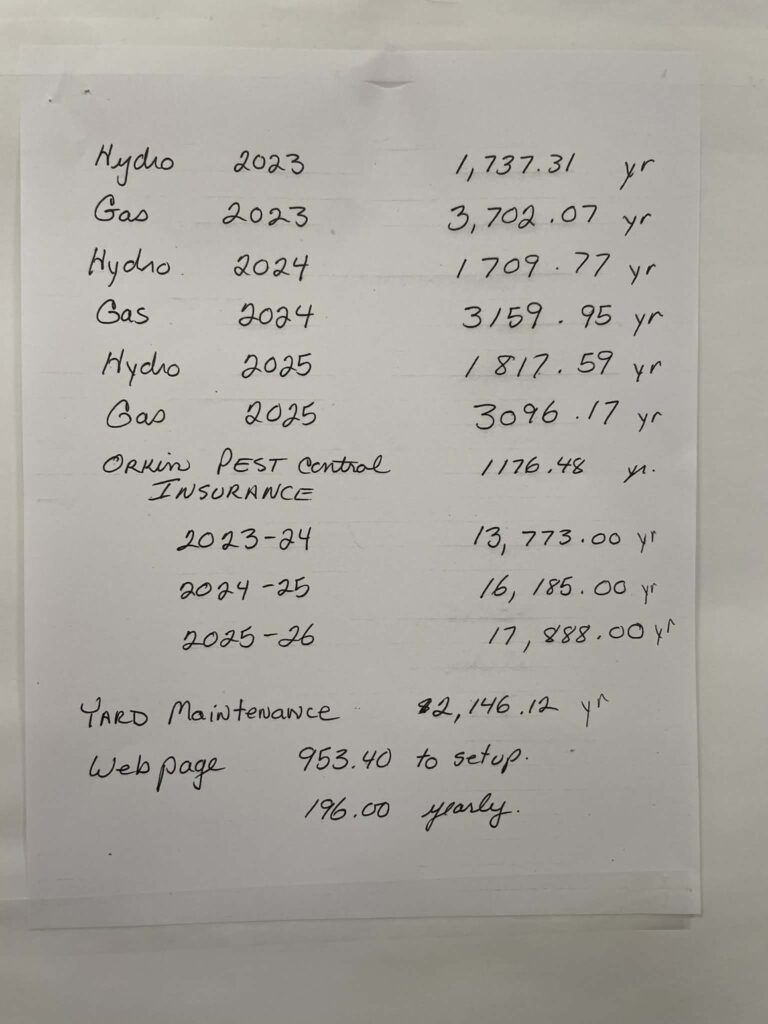 Hydro 2023 1,737.31 yr
Gas 2023 3,702.07 yr
Hydro 2024 1709.77 yr
Gas 2024 3159.95 yr
Hydro 2025 1817.59 yr
Gas 2025 3096.17 yr
ORKIN PEST control 1176.48 yr.
INSURANCE
2023-24 13,773.00 yr
2024-25 16,185.00 yr
2025-26 17,888.00 yr
YARD Maintenance $2,146.12 yr
Web page 953.40 to setup.
196.00 yearly.